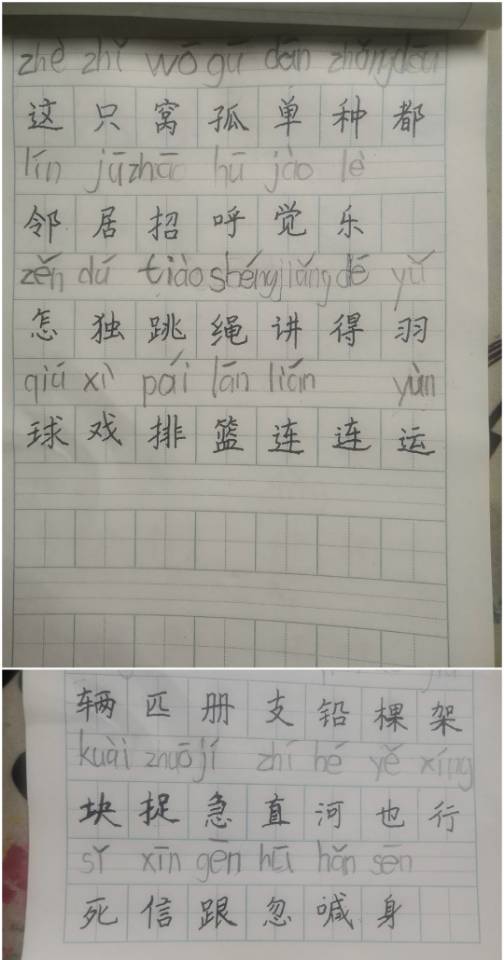 zhè zhǐ wō gū dān zhǒng dōu
这 只 窝 孤 单 种 都
lín jū zhāo hū jào lè
邻 居 招 呼 觉 乐
zěn dú tiào shéng jiǎng dé yǔ
怎 独 跳 绳 讲 得 羽
qiú xì pái lān lián yùn
球 戏 排 篮 连 连 运
辆 匹 册 支 铅 棵 架
kuài zhuō jí zhí hé yě xíng
块 捉 急 直 河 也 行
sǐ xīn gēn hū hǎn sēn
死 信 跟 忽 喊 身